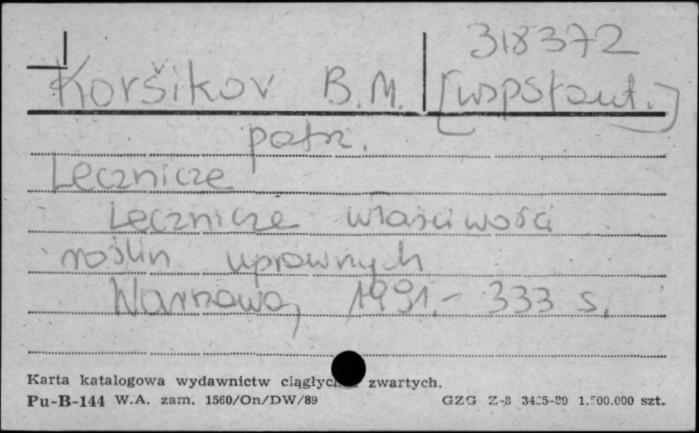 318372
Koršikov B.M. [współaut.]
patrz.
Lecznicze
Lecznicze właściwości
roślin uprawnych
Warszawa, 1991.- 333 s.
Karta katalogowa wydawnictw ciągłych zwartych.
Pu-B-144 W.A. zam. 1560/On/DW/89 GZG Z-3 1.500.000 szt.